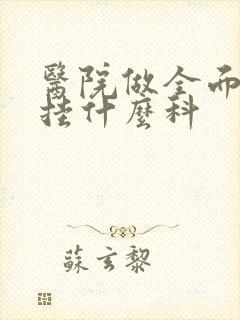 醫院做全而
挂什麼科
蘇玄黎